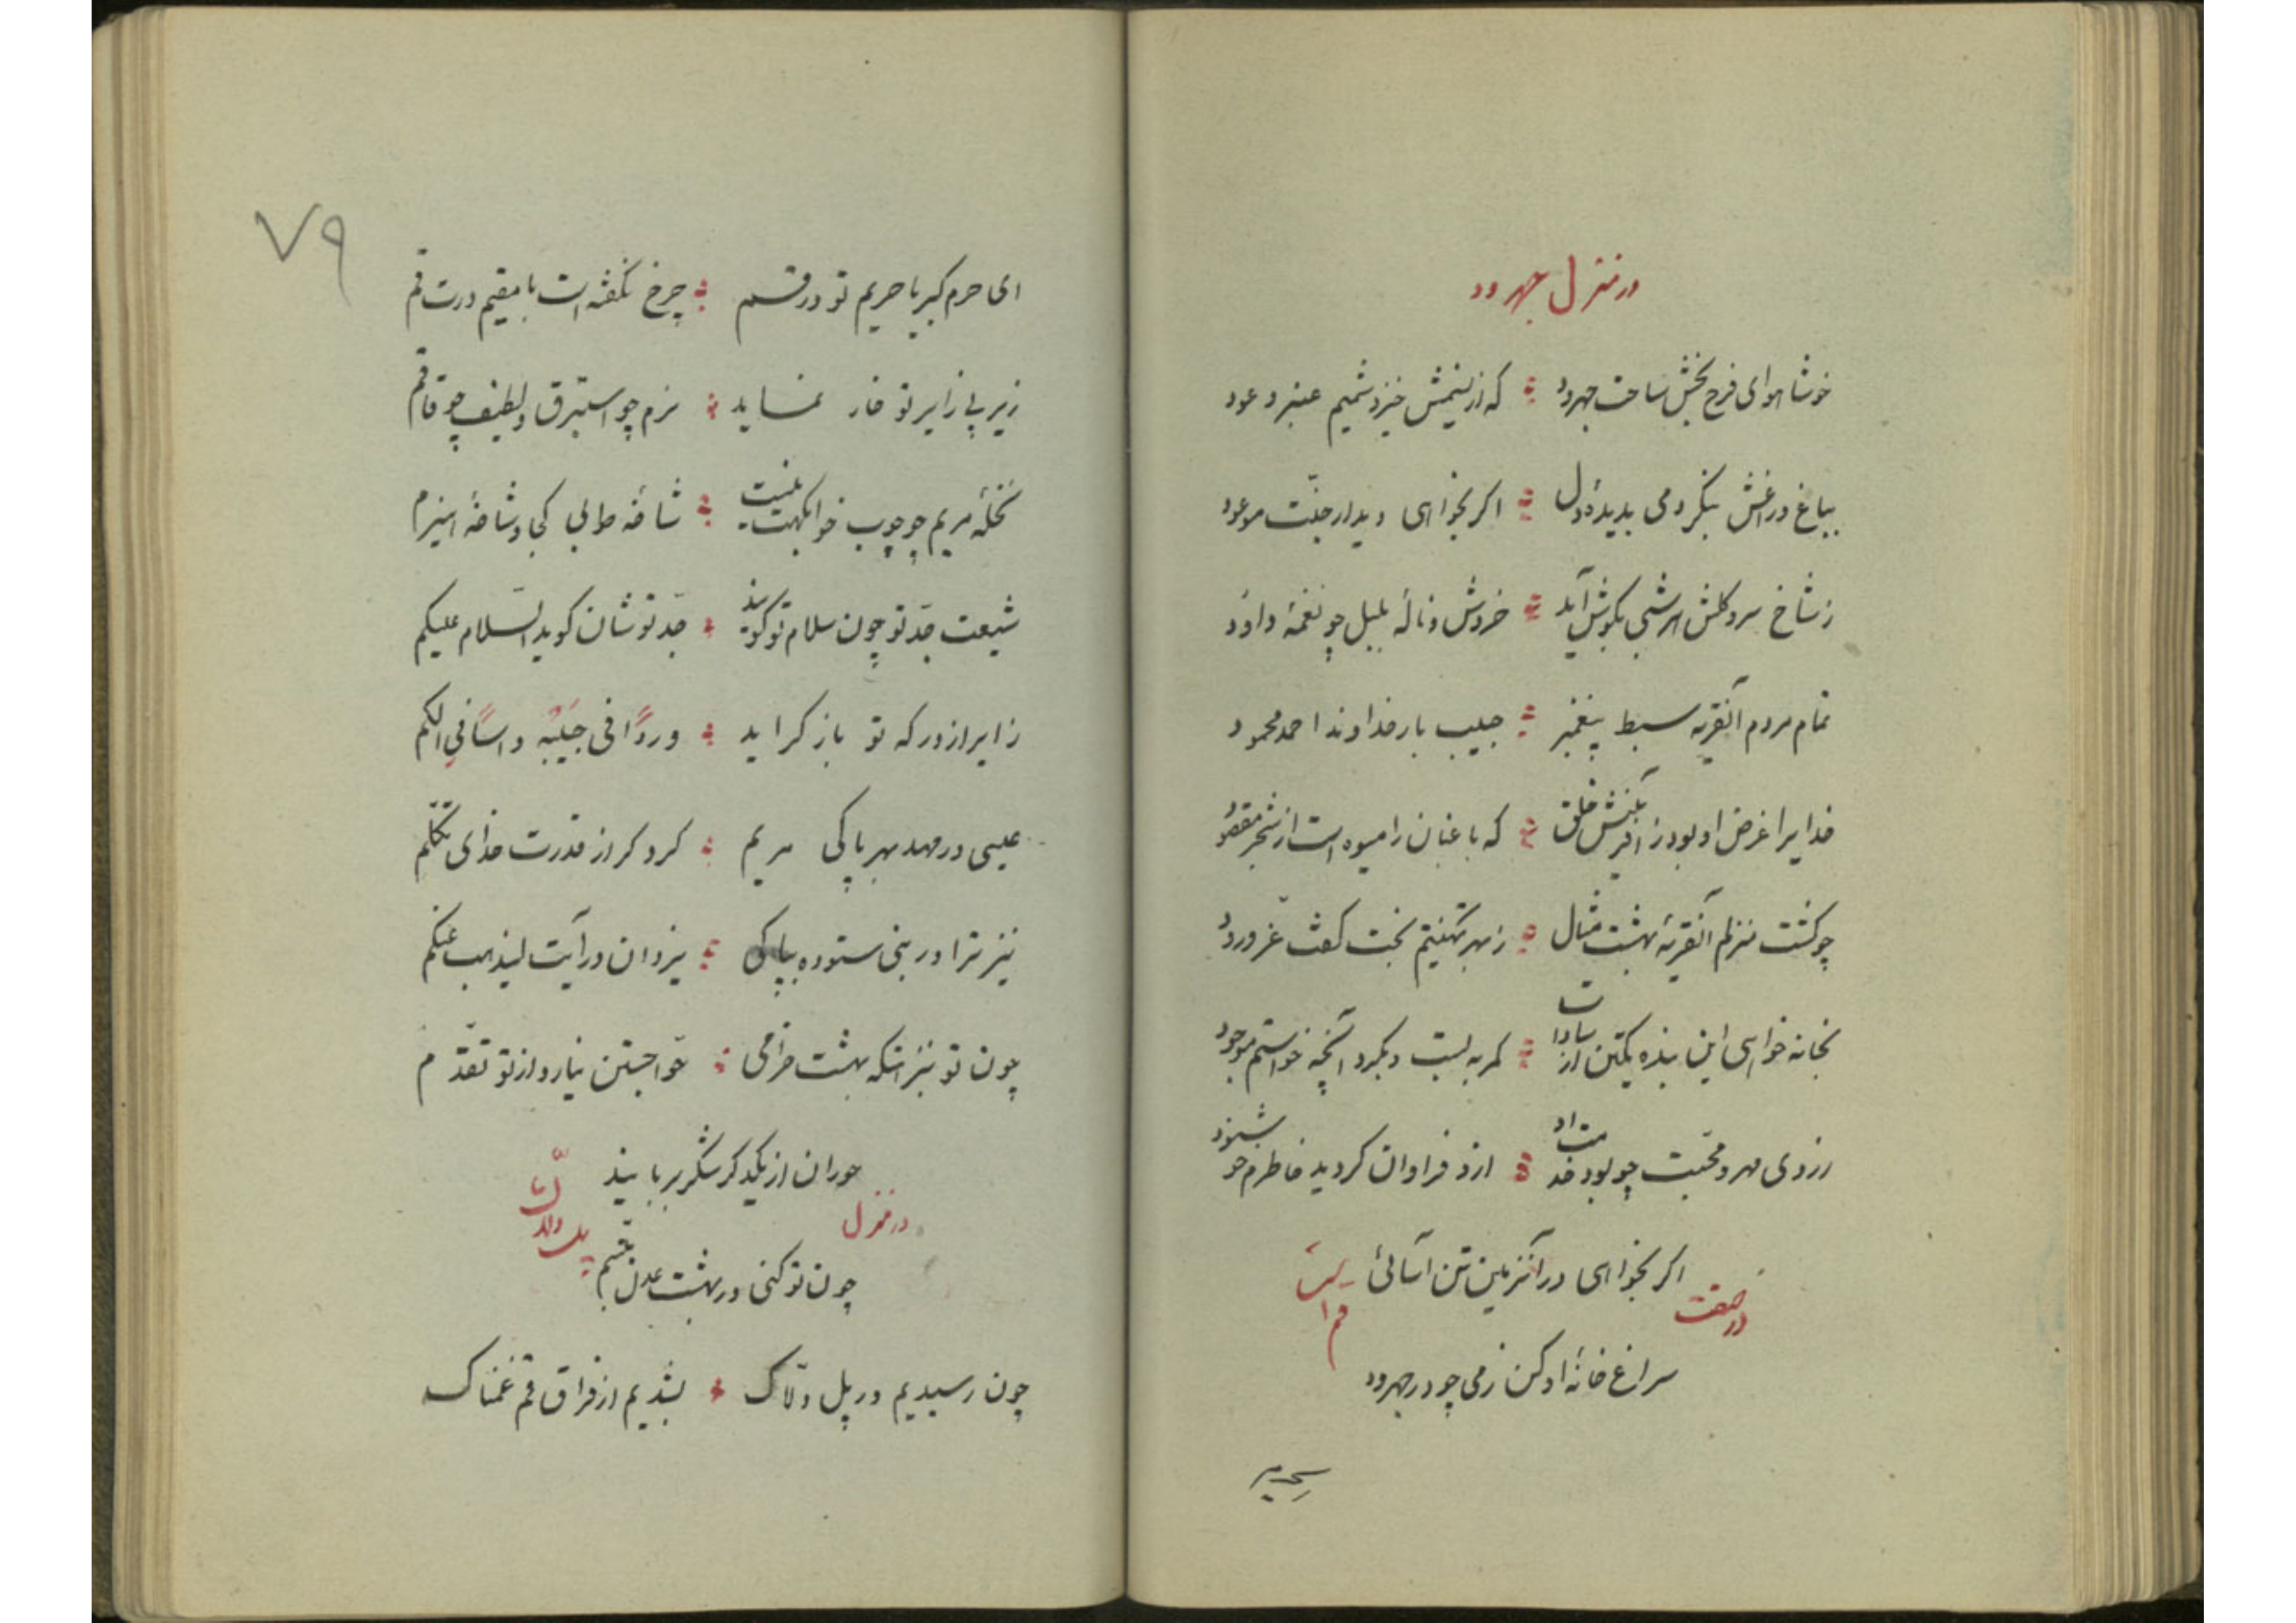 در منزل جهرود
خوشا هوای فرح بخش ساحت جهرود ؛ که از نسیمش خیزد شمیم عنبر و عود
بباغ و راغش بنگر دمی بدیدهٔ دل ؛ اگر بخواهی دیدار جنّت موعود
ز شاخ سرو گلش هر شبی بگوش آید ؛ خروش و نالهٔ بلبل چو نغمهٔ داود
تمام مردم آنقریه سبط پیغمبر ؛ حبیب بار خداوند احمد محمود
خدایرا غرض او بود ز آفرینش خلق ؛ که باغبان را میوه است از شجر مقصود
چو گشت منزلم آنقریهٔ بهشت مثال ؛ ز بهر تهنیتم بخت گفت عزّ ورود
بخانه خواهی این بنده یکتن از سادات ؛ کمر به بست و بکرد آنچه خواستم موجود
ز روی مهر و محبت چو بود خدمت او ؛ ازو فراوان گردید خاطرم خوشنود
اگر بخواهی در آنزمین تن آسائی
در صفت قم است
سراغ خانهٔ او کن زمی چو در جهرود
۷۹
ای حرم کبریا حریم تو در قم ؛ چرخ نگفته است با مقیم درت قم
زیر پی زایر تو خار نماید ؛ نرم چو استبرق و لطیف چو قاقم
نخلهٔ مریم چو چوب خوابگهت نیست ؛ شاخهٔ طوبی کجا و شاخهٔ هیزم
شیعت جدّ تو چون سلام تو گویند ؛ جدّ تو شان گوید السّلام علیکم
زایر از درگه تو باز گراید ؛ وردًا فی جَیبهُ و اسًا فی الکم
عیسی در مهد بهر پاکی مریم ؛ کرد گر از قدرت خدای تکلّم
نیز ترا در نبی ستوده بپاکی ؛ یزدان در آیت لیذهب عنکم
چون تو نیز آنکه بهشت خرامی ؛ حوّا جستن نیارد از تو تقدّم
حوران از یکدگر شکر بربایند
در منزل پل دلاک
چون تو کنی در بهشت عدن تبسّم
چون رسیدیم در پل دلّاک ؛ بشدیم از فراق قم غمناک